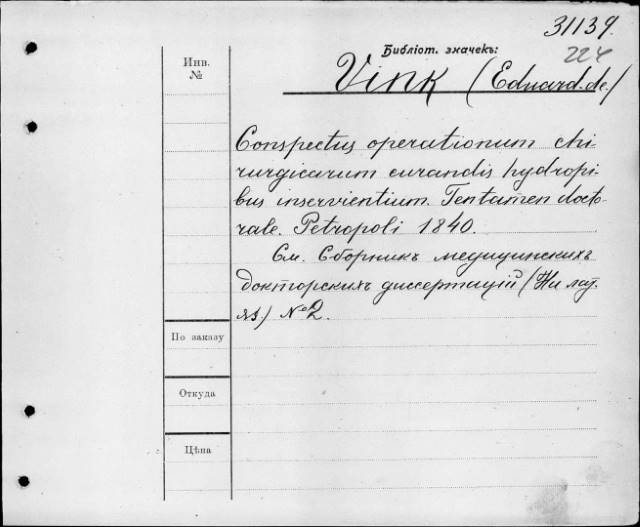 31139.
224
Библіот. значекъ:
Инв.
№
Vink (Eduard. de)
Conspectus operationum chi-
rurgicarum curandis hydropi-
bus inservientium. Tentamen docto-
rale. Petropoli 1840.
См. Сборникъ медицинскихъ
докторскихъ диссертацій (На лат.
яз.) №2.
По заказу
Откуда
Цѣна